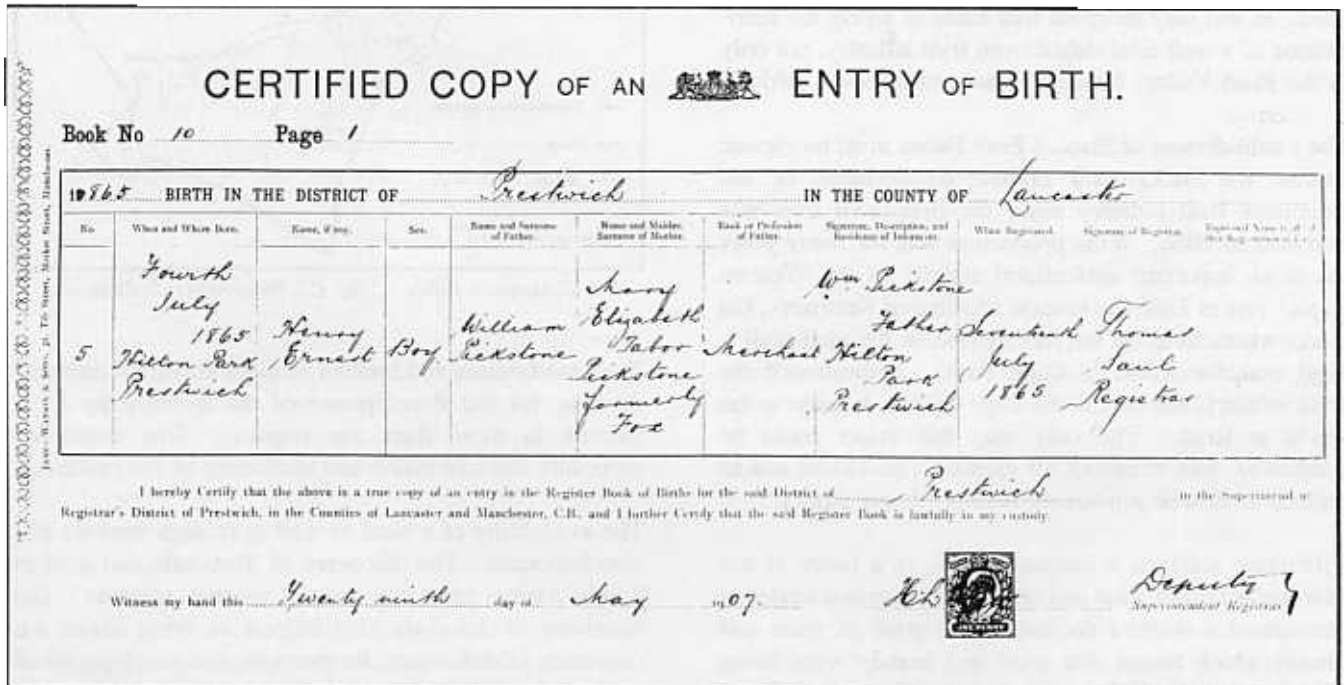 CERTIFIED COPY OF AN ENTRY OF BIRTH.
Book No 10 Page 1
1865 BIRTH IN THE DISTRICT OF Prestwich IN THE COUNTY OF Lancaster
No When and Where Born. Name, if any. Sex. Name and Surname of Father. Name and Maiden Surname of Mother. Rank or Profession of Father. Signature, Description, and of Informant. When Registered. Signature of Registrar.
5
Fourth
July
1865
Hilton Park
Prestwich
Henry
Ernest
Boy
William
Pickstone
Mary
Elizabeth
Tabor
Pickstone
formerly
Fox
Merchant
Wm Pickstone
Father
Hilton
Park
Prestwich
Seventeenth
July
1865
Thomas
Saul
Registrar
I hereby Certify that the above is a true copy of an entry in the Register Book of Births for the said District of Prestwich
Registrar's District of Prestwich, in the Counties of Lancaster and Manchester, C.B., and I further Certify that the said Register Book is lawfully in my custody.
Witness my hand this Twenty ninth day of May 1907.
Deputy
Superintendent Registrar